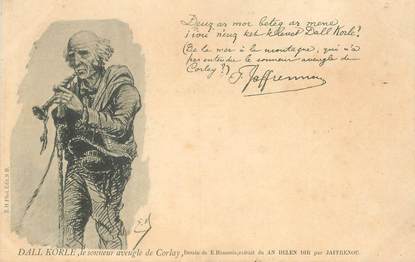 Deuz ar mor beteg ar mene
piou n'euz ket klevet Dall Korle?
(De la mer à la montagne, qui n'a
pas entendu le sonneur aveugle de
Corlay?)
F. Jaffrennou
DALL KORLE, le sonneur aveugle de Corlay, Dessin de E. extrait du AN DELEN DIR par JAFFRENOU.